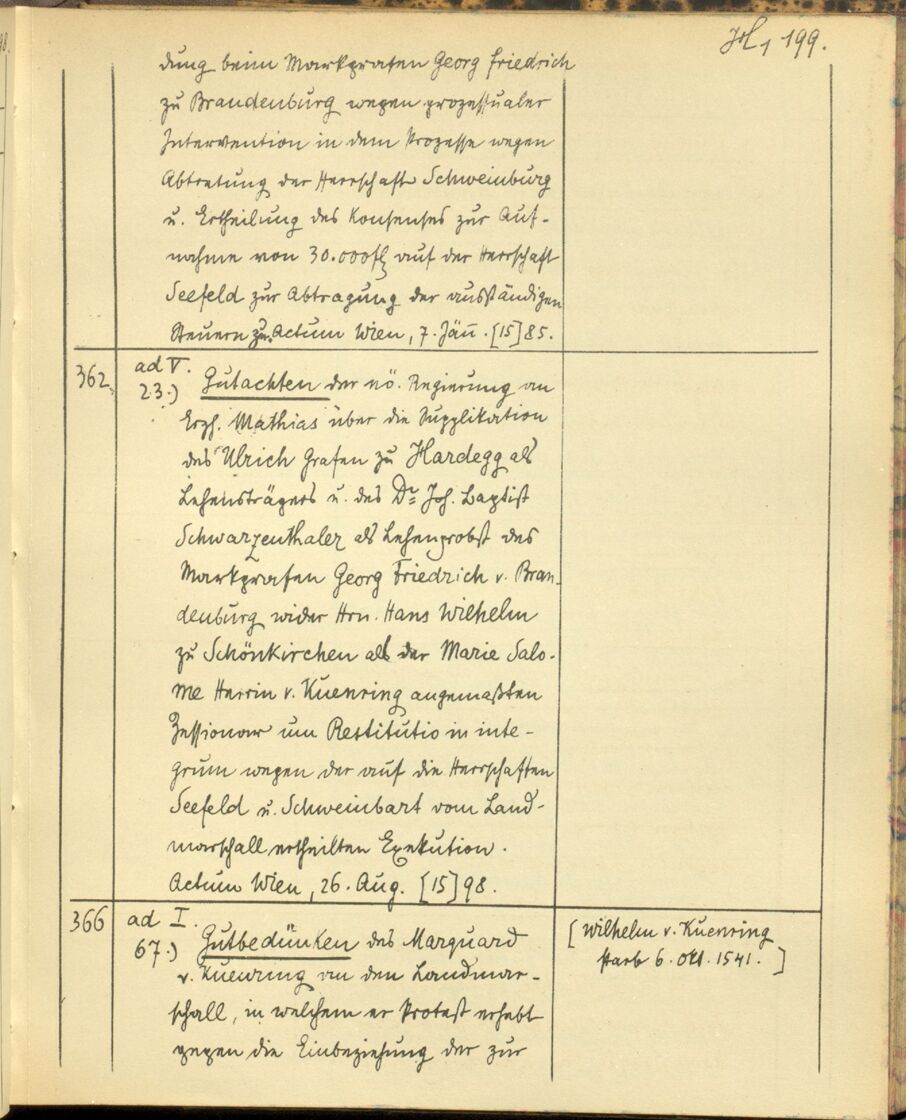 199.
dung beim Markgrafen Georg Friedrich
zu Brandenburg wegen prozessualer
Intervention in dem Prozesse wegen
Abtretung der Herrschaft Schweinburg
u. Ertheilung des Konsenses zur Auf-
nahme von 30.000 fl auf der Herrschaft
Seefeld zur Abtragung der ausständigen
Steuern zu. Actum Wien, 7. Jän. [15]85.
362. ad V.
23.) Gutachten der nö. Regierung an
Erzh. Mathias über die Supplikation
des Ulrich Grafen zu Hardegg als
Lehensträgers u. des Dr. Joh. Baptist
Schwarzenthaler als Lehenprobst des
Markgrafen Georg Friedrich v. Bran-
denburg wider Hrn. Hans Wilhelm
zu Schönkirchen als der Marie Salo-
me Herrin v. Kuenring angemaßten
Zessionar um Restitutio in inte-
grum wegen der auf die Herrschaften
Seefeld u. Schweinbart vom Land-
marschall ertheilten Exekution.
Actum Wien, 26. Aug. [15]98.
366 ad I.
67.) Gutbedünken des Marquard
v. Kuenring an den Landmar-
schall, in welchem er Protest erhebt
gegen die Einbeziehung der zur
[Wilhelm v. Kuenring
starb 6. Okt. 1541.]